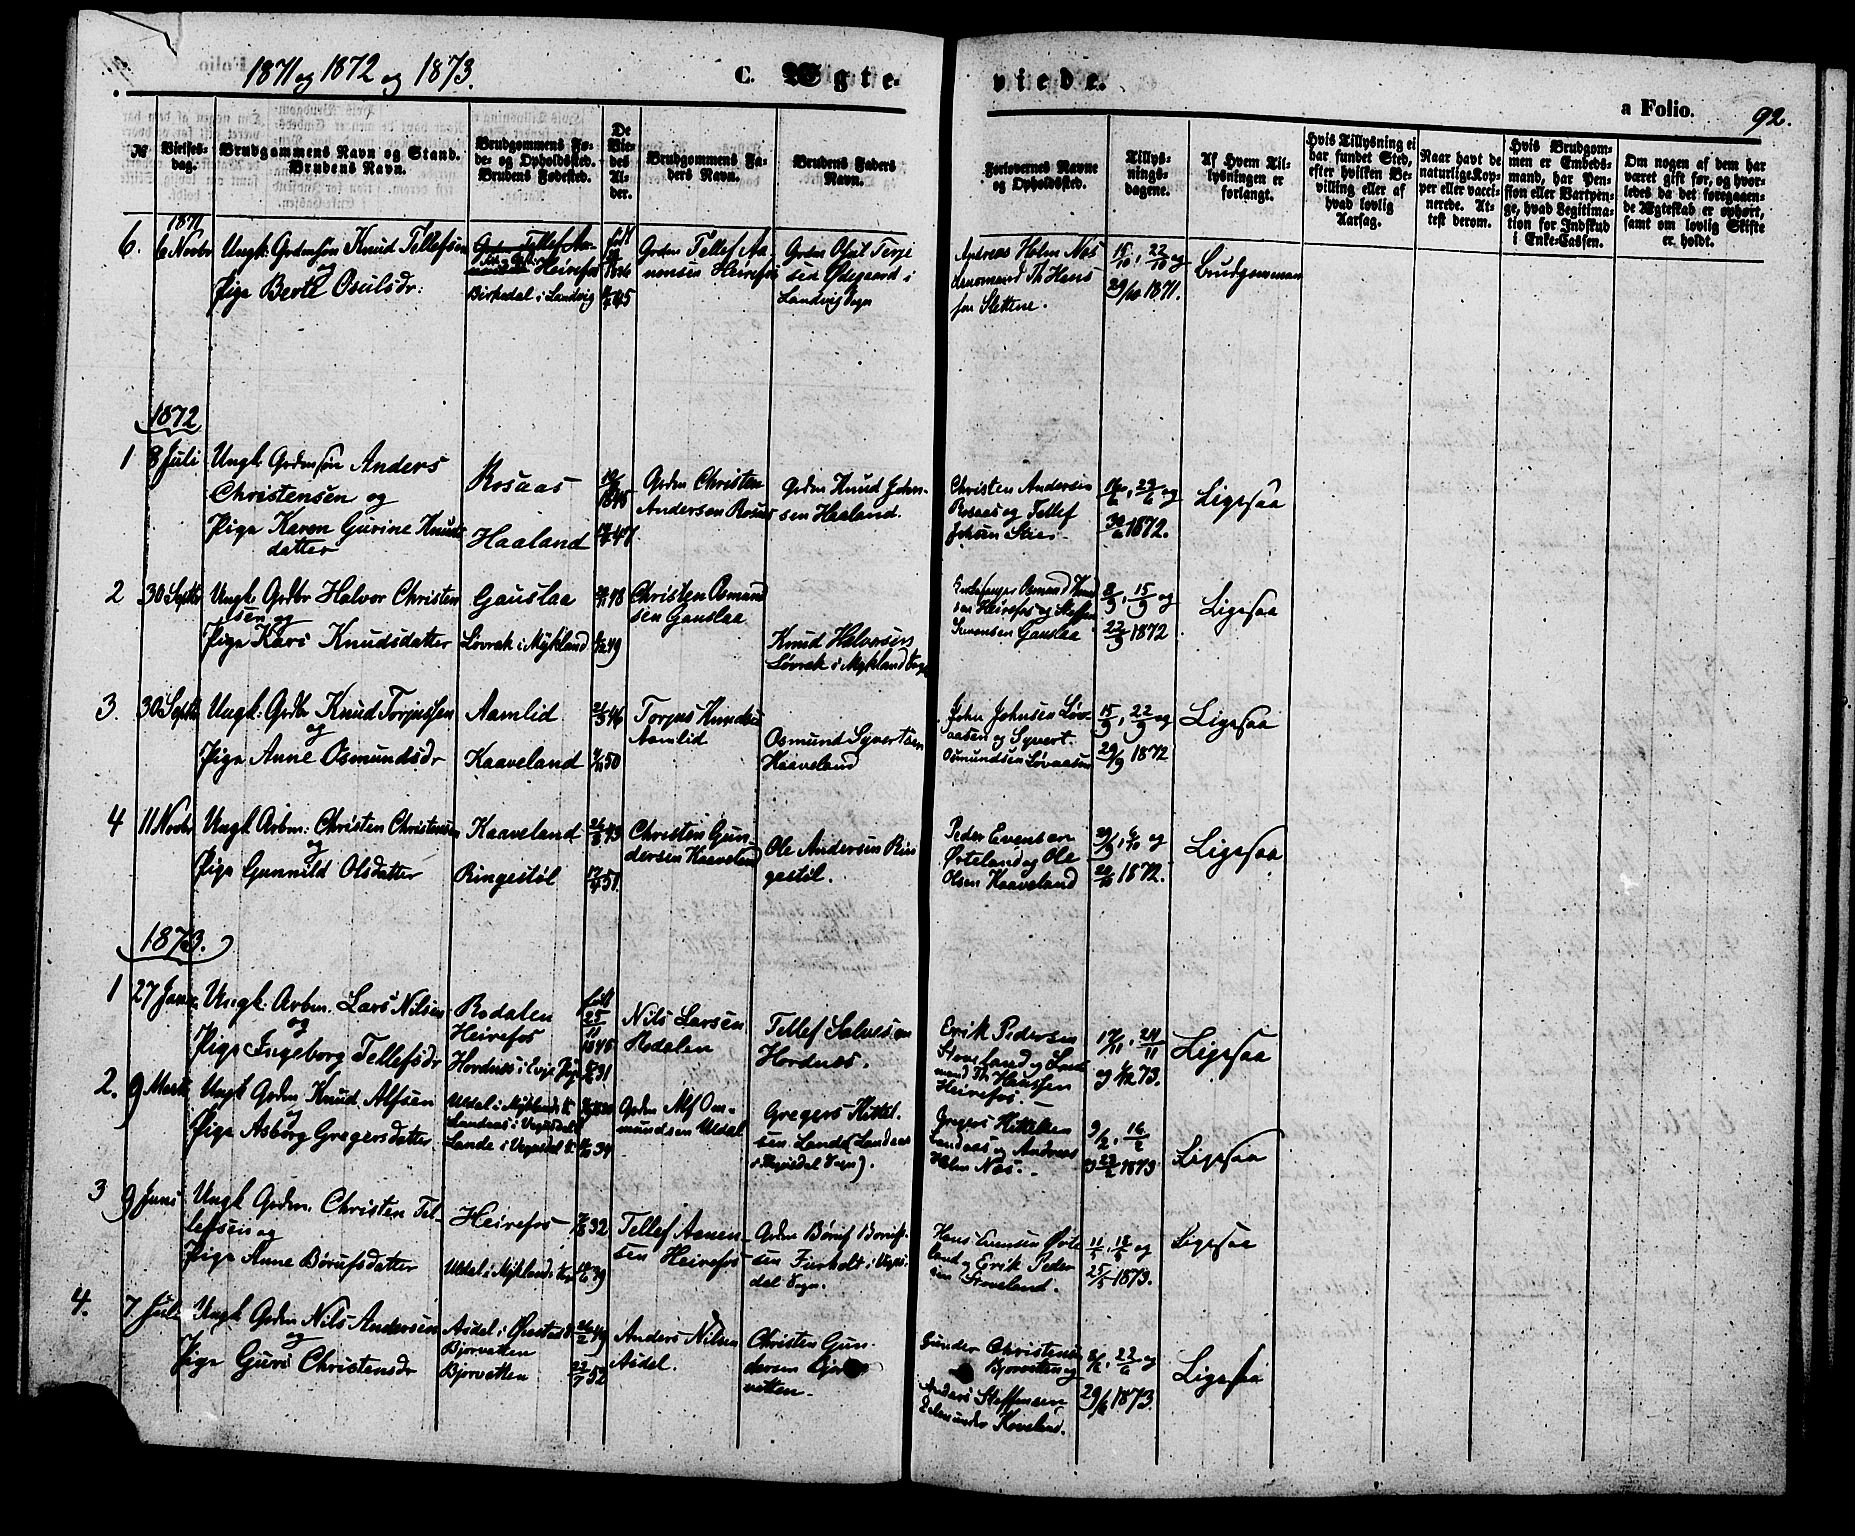 1871 og 1872 og 1873.
C. Ægte-
viede.
a Folio. 92.
№
Virkses-
dag.
Brudgommens Navn og Stand.
Brudens Navn.
Brudgommens Fø-
de- og Opholdssted.
Brudens Fødested.
De
Vie-
des
Al-
der.
Brudgommens Fa-
ders Navn.
Brudens Faders
Navn.
Forlovernes Navne
og Opholdssted.
Tillys-
nings-
dagene.
Af Hvem Til-
lysningen er
forlangt.
Hvis Tillysning ei
har fundet Sted,
efter hvilken Be-
villing eller af
hvad lovlig
Aarsag.
Naar havt de
naturlige Kop-
per eller vacci-
nerede. At-
test derom.
Hvis Brudgom-
men er Embeds-
mand, har Pen-
sion eller Vartpen-
ge, hvad Legitima-
tion for Indskud
i Enke-Cassen.
Om nogen af dem har
været gift før, og hvor-
ledes da det foregaaen-
de Ægteskab er ophørt,
samt om lovlig Skifte
er holdt.
1871
6. 6 Novbr Ungk. Grdmsøn Knud Tellefsen
og
Pige Berte Osulsdr:
Heirefos
Birkedal i Landvig
født
45
Grdm Tellef Aa-
nonsen Heirefos
Grdm Osul Terje
sen Ødegaard i
Landvig Sogn
Andreas Holm Næs
Lensmand Th Hans
sen Slettene.
15/10, 22/10 og
29/10 1871.
Brudgommen
1872
1 8 Juli Ungk Grdmsøn Anders
Christensen og
Pige Karen Gurine Knuds
datter
Rosaas
Haaland
1845
47
Grdm Christen
Andersen Rosaas
Grdm Knud John-
sen Haaland.
Christen Andersen
Rosaas og Tellef
Johsen Stie
16/6, 23/6 og
30/6 1872.
Ligesaa
2 30 Septbr Ungk Grdbr Halvor Christen
sen og
Pige Kari Knudsdatter
Gauslaa
Løvrak i Mykland
48
49
Christen Osmund
sen Gauslaa
Knud Halvorsen
Løvrak i Mykland Sogn
Osmund Knud
sen Heirefos og Steffen
Gauslaa
8/9, 15/9 og
22/9 1872
Ligesaa
3. 30 Septbr Ungk: Grdbr Knud Torjussen
og
Pige Anne Osmundsdr
Aamlid
Kaaveland
46
50
Torjus Knudsen
Aamlid
Osmund Syvertsen
Kaaveland
John Johnsen Løv-
aasen og Syvert
Osmundsen Løvaasen
15/9, 22/9 og
29/9 1872
Ligesaa
4 11 Novbr Ungk Arbm: Christen Christensen
og
Pige Gunnild Olsdatter
Kaaveland
Ringestöl
43
51
Christen Gun-
dersen Kaaveland
Ole Andersen Rin
gestöl.
Peder Evensen
Øxteland og Ole
Olsen Kaaveland
29/9, 6/10 og
20/10 1872.
Ligesaa
1873.
1 27 Janr Ungk. Arbm. Lars Nilsen
og
Pige Ingeborg Tellefsdr
Rodalen
Heirefos
Hordnæs i Evje
født
25
11
1845
31
Nils Larsen
Rodalen
Tellef Salvesen
Hordnæs.
Erik Pedersen
Stoveland og Lens
mand Th Hanssen
Heirefos.
17/11, 24/11
og 1/12 73.
Ligesaa
2. 9 Marts Ungk Grdm Knud Alfsen
og
Pige Asborg Gregersdatter
Uldal i Myklands
Landaas i Vegusdal
Lande i Vegusdal
39
Grdm Alf Om-
mundsen Uldal
Gregers Kittel-
sen Lande (Landaas
i Vegusdal Sogn).
Gregers Kittelsen
Landaas og Andreas
Holm Næs.
9/2, 16/2
og 23/2 1873
Ligesaa
3 9 Juni Ungk Grdm. Christen Tel-
lefsen og
Pige Anne Börufsdatter
Heirefos
Uldal i Myklands Sogn
32
49
Tellef Aanen-
sen Heirefos
Grdm Börüf Boruf-
sen Furholt i Vegus-
dal Sogn.
Hans Evensen Øxte
land og Erik Peder
sen Stoveland.
11/5, 18/5 og
25/5 1873.
Ligesaa
4. 7 Juli Ungk Grdm Nils Andersen
og
Pige Guri Christensdr
Asdal i Øiestad
Bjorvatten
Bjorvatten
49
52
Anders Nilsen
Asdal.
Christen Gun-
dersen Bjor
vatten.
Gunder Christensen
Bjorvatten og
Anders Steffensen
Kaveland.
8/6, 22/6 og
29/6 1873.
Ligesaa